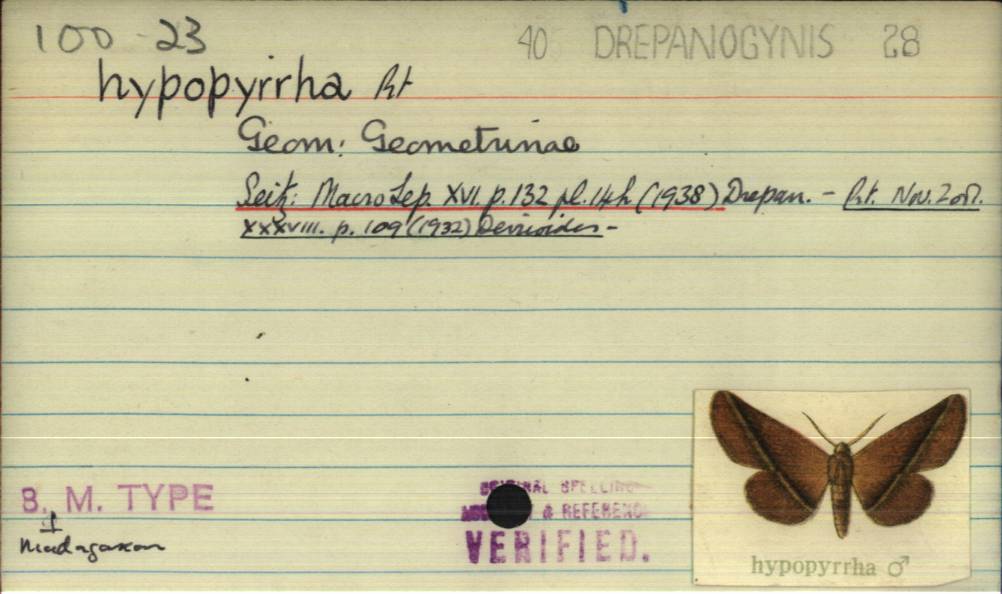 100 23 40 DREPANOGYNIS 28
hypopyrrha Prt
Geom: Geometrinae
Seitz: MacroLep. XVI. p.132 pl.14h (1938) Drepan. - Prt. Nov. Zool.
XXXVIII. p. 109 (1932)
B. M. TYPE
Madagascar
ORIGINAL SPELLING
& REFERENCE
VERIFIED.
hypopyrrha ♂